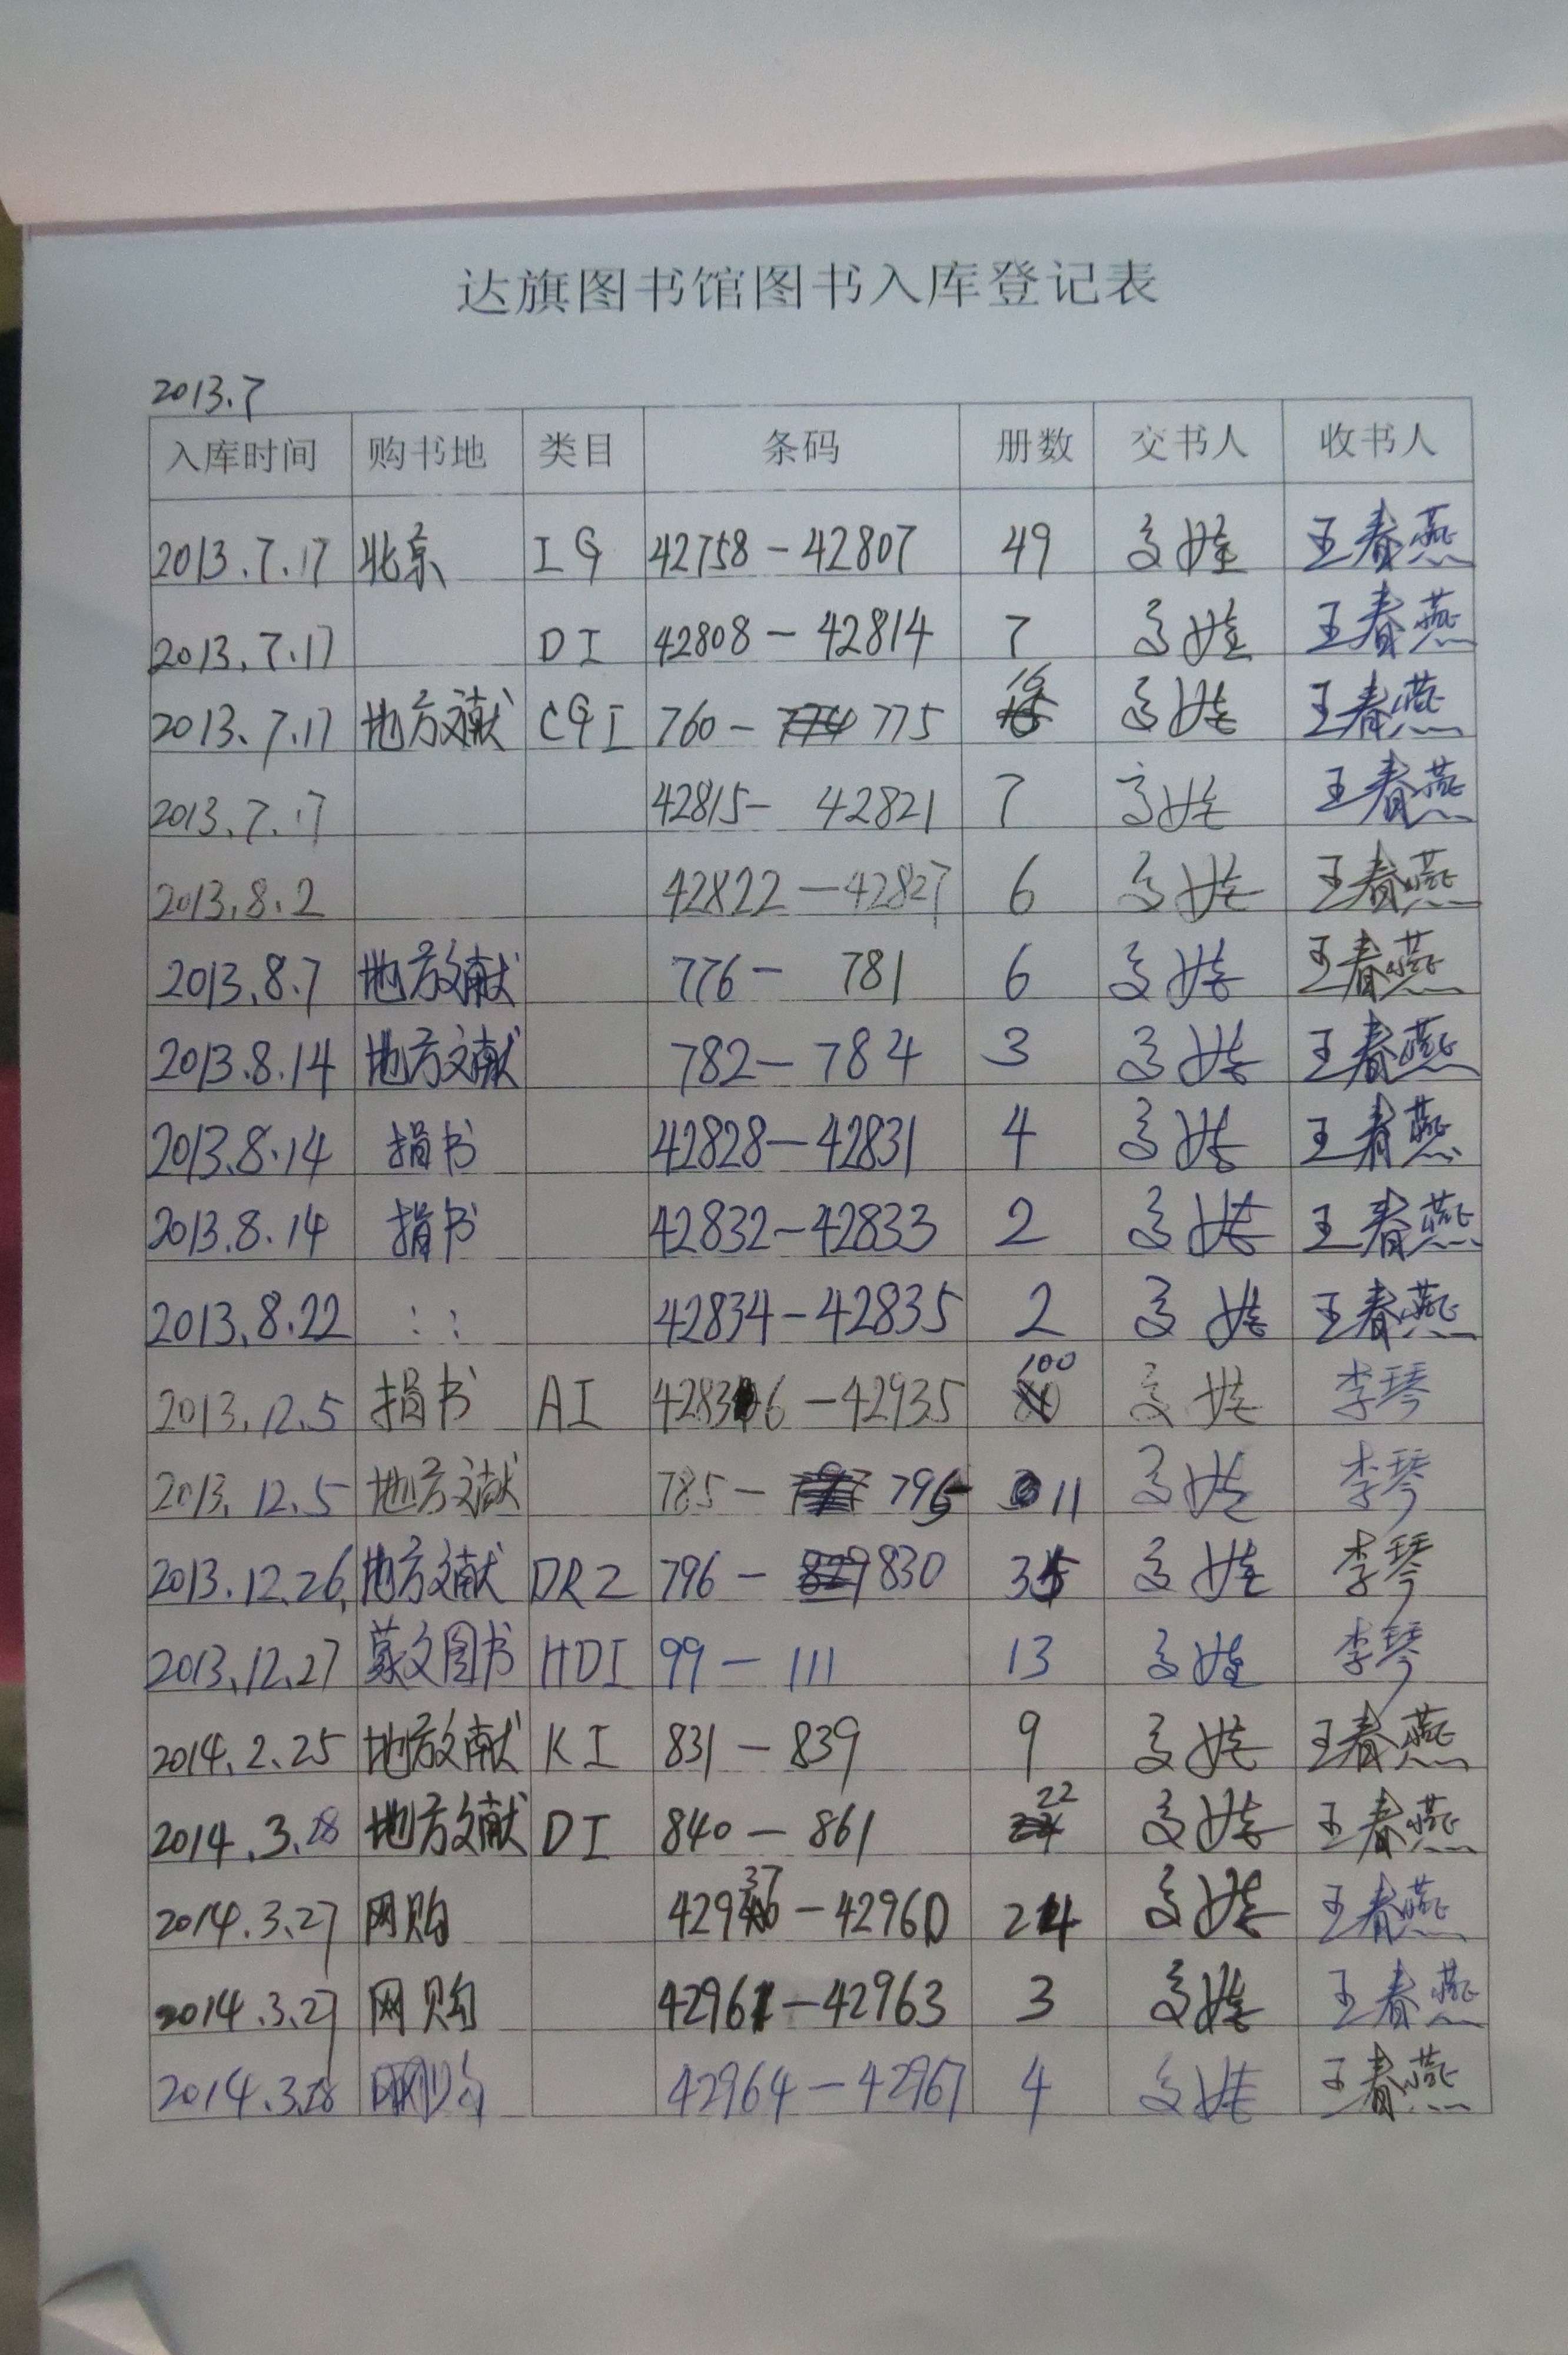 达旗图书馆图书入库登记表
2013.7
入库时间 购书地 类目 条码 册数 交书人 收书人
2013.7.17 北京 IG 42758-42807 49 王春燕
2013.7.17 DI 42808-42814 7 王春燕
2013.7.17 地方文献 CGI 760-775 16 王春燕
2013.7.17 42815-42821 7 王春燕
2013.8.2 42822-42827 6 王春燕
2013.8.7 地方文献 776-781 6 王春燕
2013.8.14 地方文献 782-784 3 王春燕
2013.8.14 捐书 42828-42831 4 王春燕
2013.8.14 捐书 42832-42833 2 王春燕
2013.8.22 : : 42834-42835 2 王春燕
2013.12.5 捐书 AI 42836-42935 100 李琴
2013.12.5 地方文献 785-795 11 李琴
2013.12.26. 地方文献 DRZ 796-830 35 李琴
2013.12.27 蒙文图书 HDI 99-111 13 李琴
2014.2.25 地方文献 KI 831-839 9 王春燕
2014.3.28 地方文献 DI 840-861 22 王春燕
2014.3.27 网购 42937-42960 24 王春燕
2014.3.27 网购 42961-42963 3 王春燕
2014.3.28 网购 42964-42967 4 王春燕